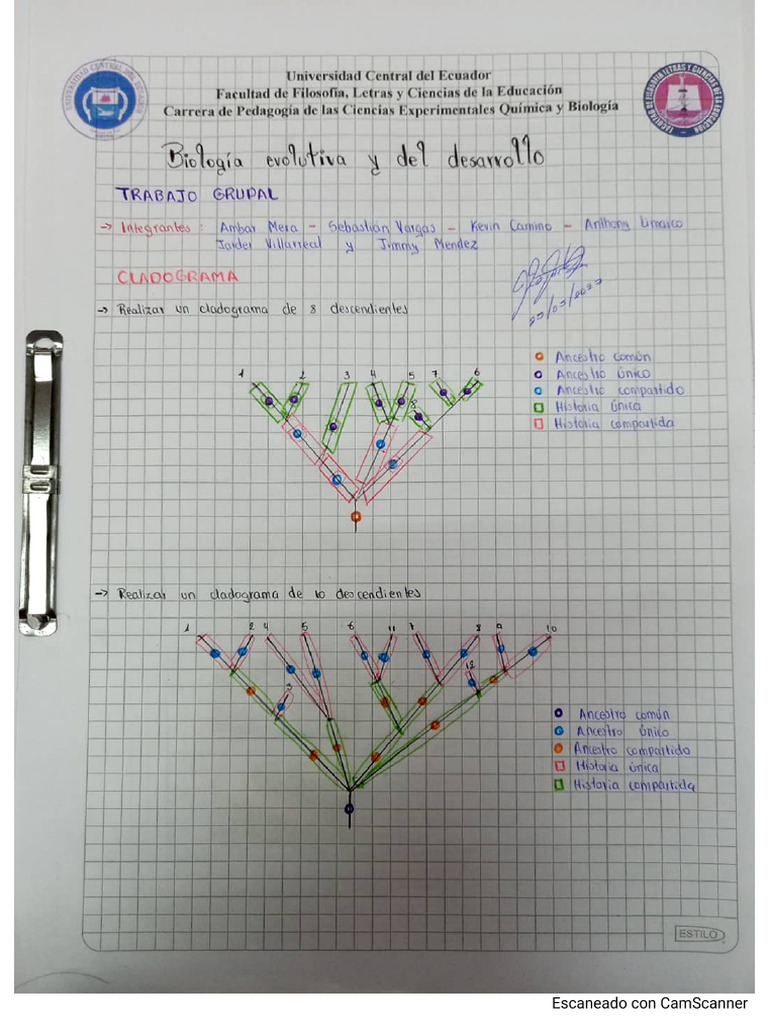 Universidad Central del Ecuador
Facultad de Filosofía, Letras y Ciencias de la Educación
Carrera de Pedagogía de las Ciencias Experimentales Química y Biología
Biología evolutiva y del desarrollo
TRABAJO GRUPAL
→ Integrantes : Ambar Mera - Sebastian Vargas - Kevin Camino - Anthony Limaico
Jaider Villarreal y Jimmy Mendez
CLADOGRAMA
→ Realizar un cladograma de 8 descendientes
1 2 3 4 5 7 6
8
Ancestro común
Ancestro único
Ancestro compartido
Historia única
Historia compartida
→ Realizar un cladograma de 10 descendientes
1 2 4 5 6 11 7 8 9 10
12
3
Ancestro común
Ancestro único
Ancestro compartido
Historia única
Historia compartida
ESTILO
Escaneado con CamScanner